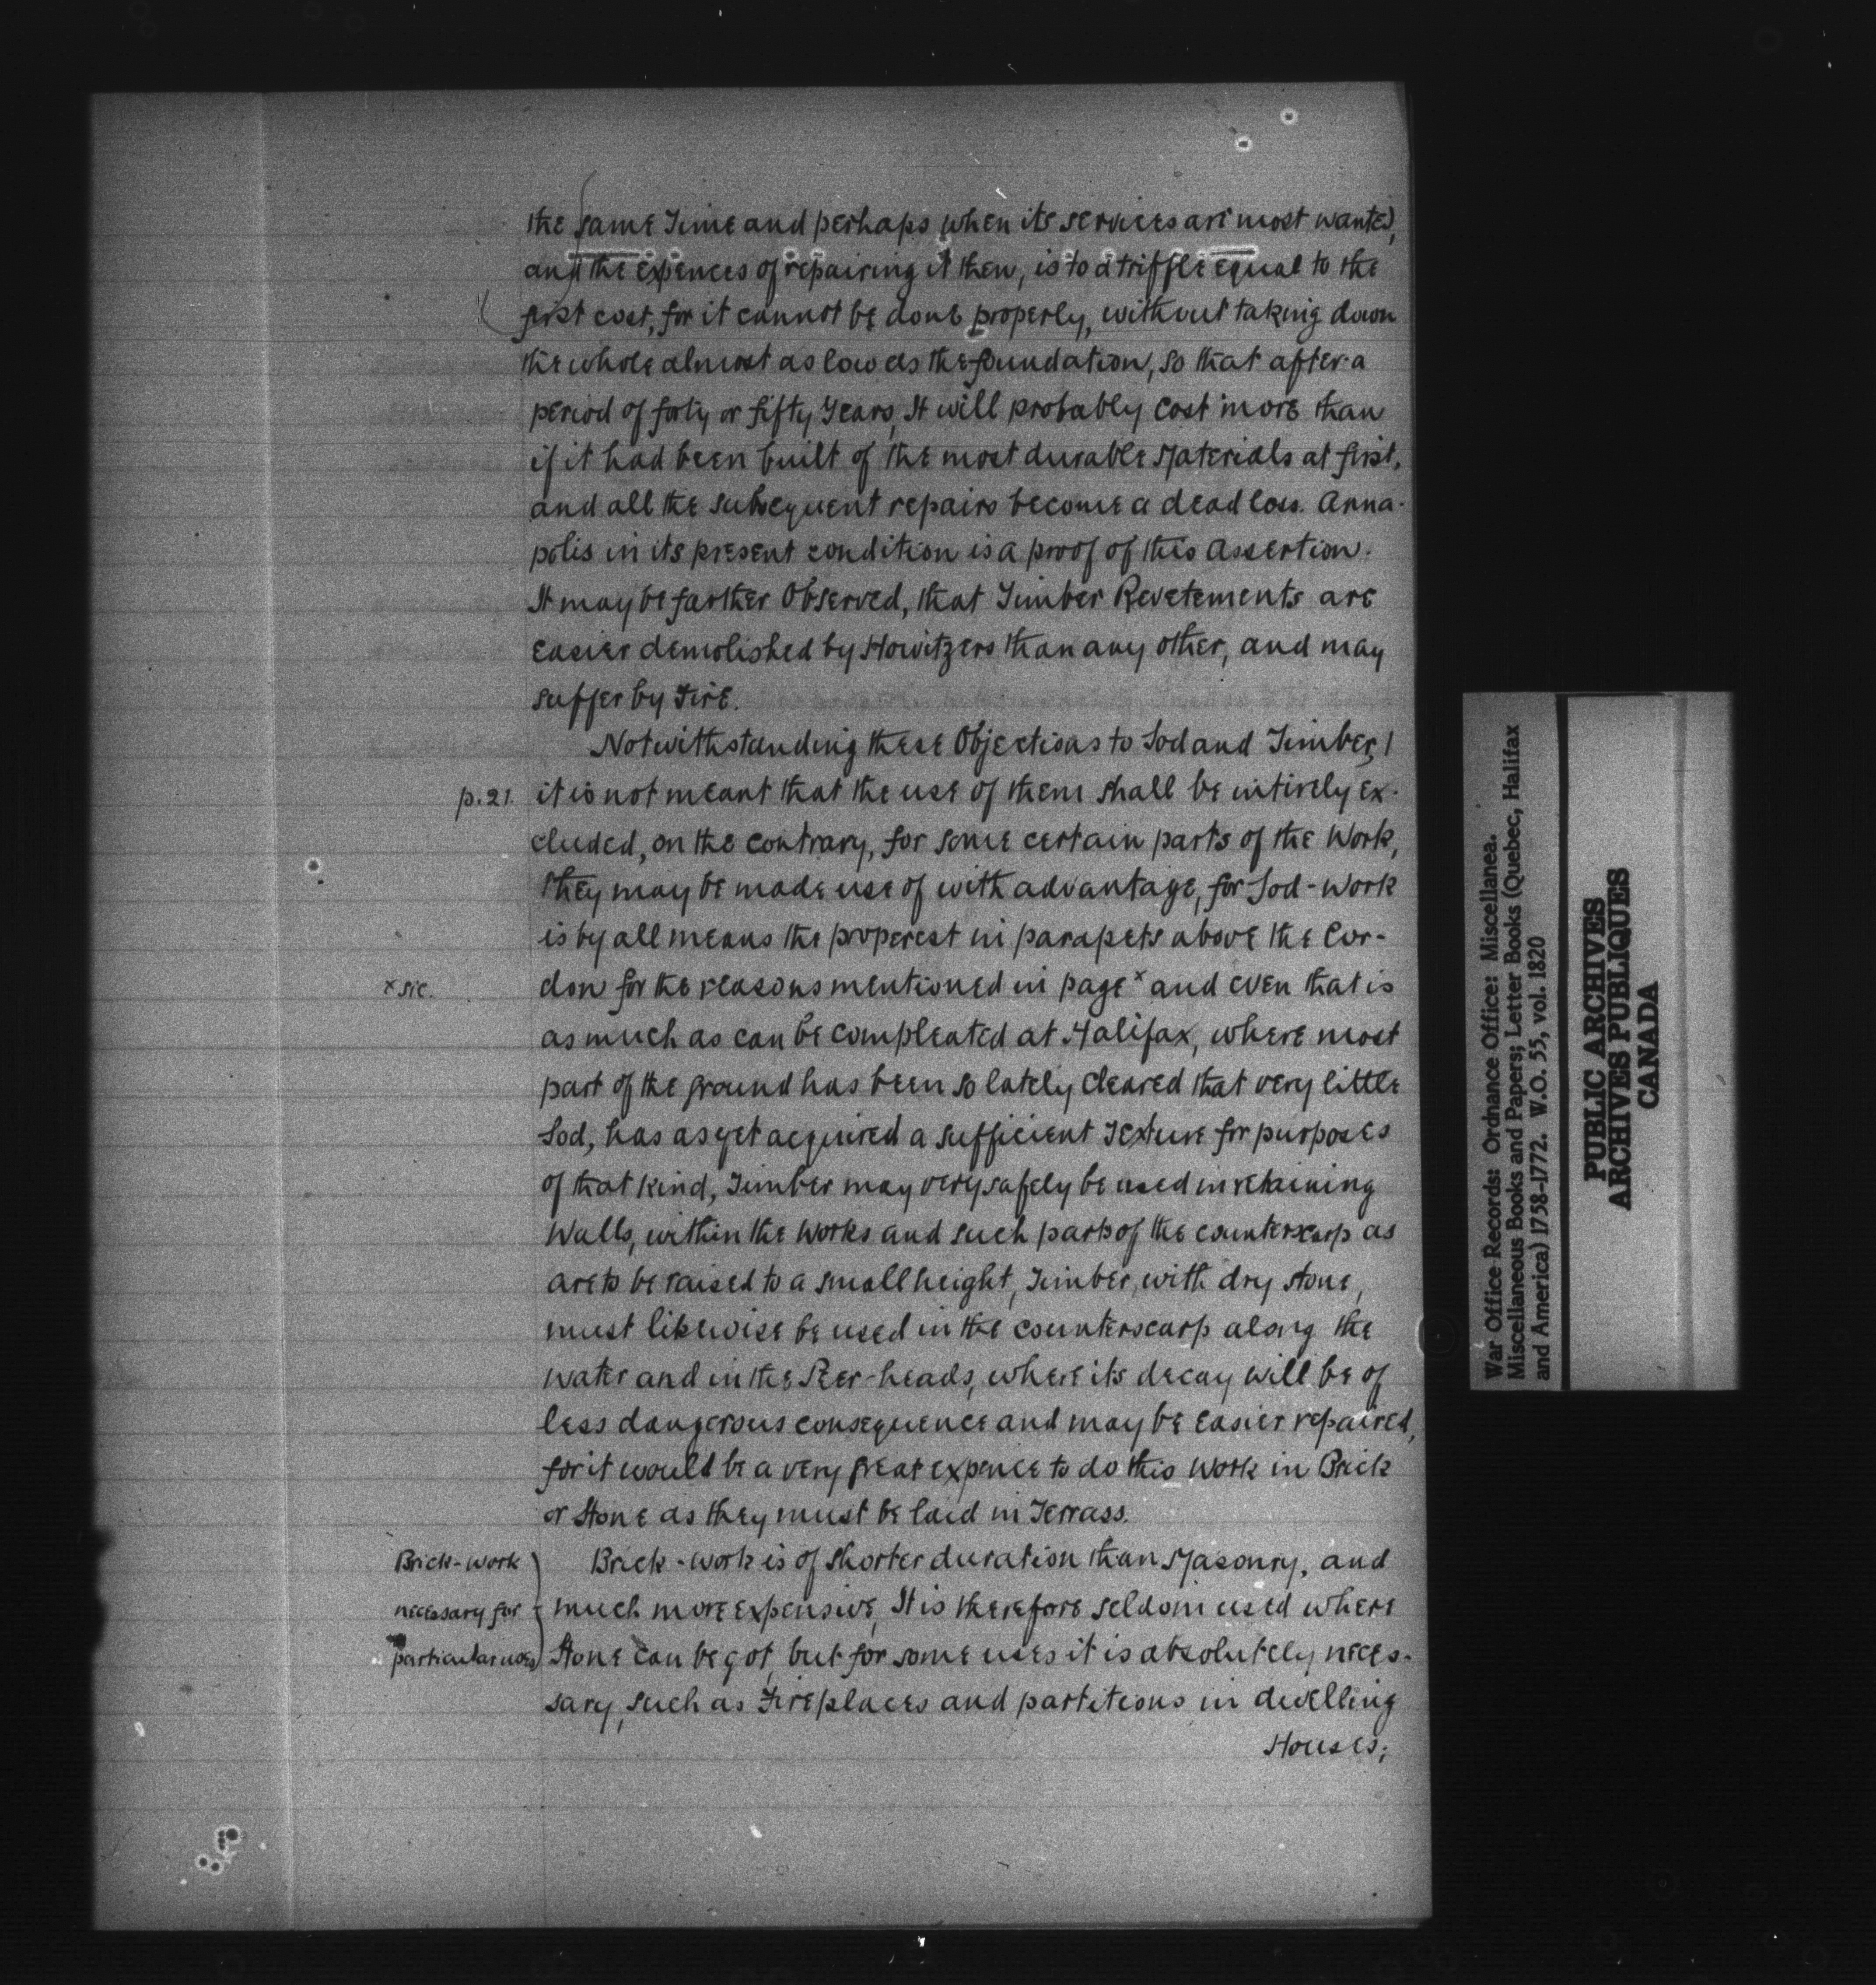 the same Time and perhaps when its services are most wanted,
and the expences of repairing it then, is to a triffle equal to the
first cost, for it cannot be done properly, without taking down
the whole almost as low as the foundation, so that after a
period of forty or fifty Years, It will probably cost more than
if it had been built of the most durable Materials at first,
and all the subsequent repairs become a dead loss. Anna-
polis in its present condition is a proof of this Assertion.
It may be farther Observed, that Timber Revetements are
easier demolished by Howitzers than any other, and may
suffer by Fire.
Notwithstanding these Objections to Sod and Timber,
p. 21. it is not meant that the use of them shall be intirely ex-
cluded, on the contrary, for some certain parts of the Work,
they may be made use of with advantage, for Sod-Work
is by all means the properest in parapets above the Cor-
x sic. don for the reasons mentioned in page x and even that is
as much as can be compleated at Halifax, where most
part of the ground has been so lately cleared that very little
Sod, has as yet acquired a sufficient Texture for purposes
of that kind, Timber may very safely be used in retaining
Walls, within the Works and such parts of the counterscarp as
are to be raised to a small height, Timber, with dry stone,
must likewise be used in the counterscarp along the
water and in the Peer-heads, where its decay will be of
less dangerous consequence and may be easier repaired,
for it would be a very great expence to do this Work in Brick
or Stone as they must be laid in Terrass.
Brick-work Brick-work is of shorter duration than Masonry, and
necessary for much more expensive, It is therefore seldom used where
particular uses Stone can be got, but for some uses it is absolutely neces-
sary, such as Fireplaces and partitions in dwelling
Houses;
War Office Records: Ordnance Office: Miscellanea.
Miscellaneous Books and Papers; Letter Books (Quebec, Halifax
and America) 1758-1772. W.O. 55, vol. 1820
PUBLIC ARCHIVES
ARCHIVES PUBLIQUES
CANADA